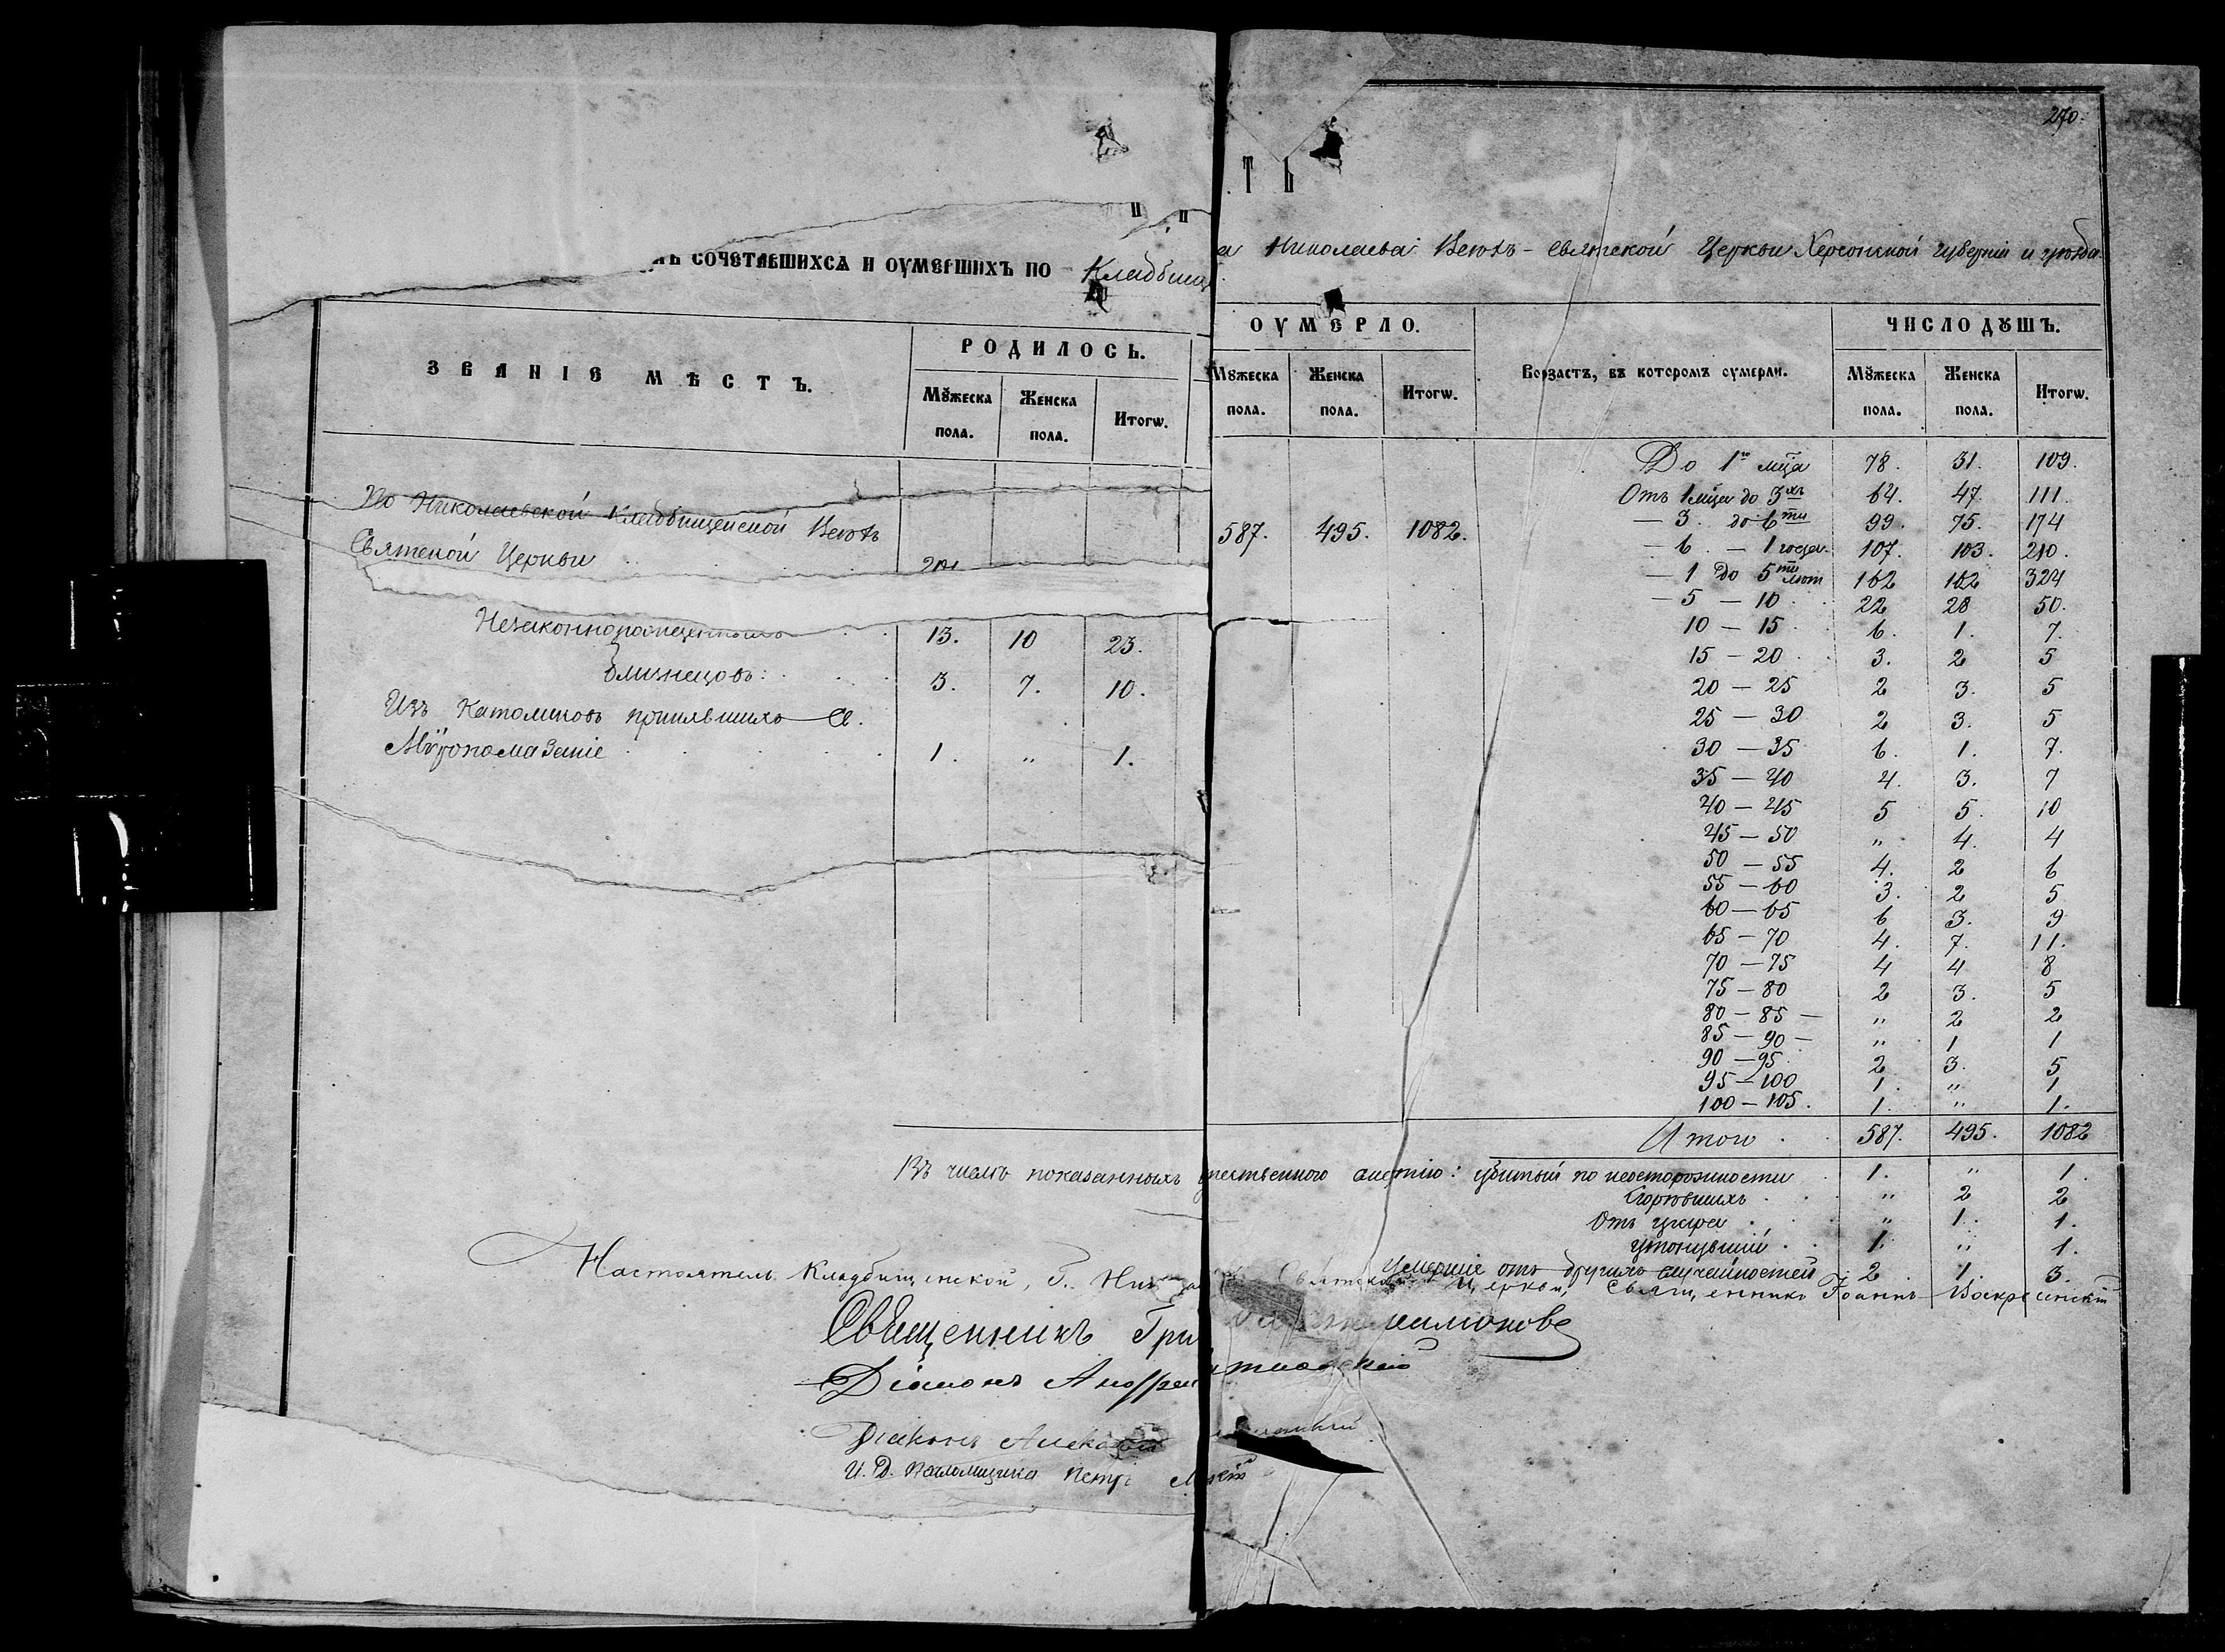 270.
ТЪ
СОЧЕТАВШИХСѦ И ОУМЕРШИХЪ ПО Кладбищ
а Николаева Всѣхъ-Святской Церкви Херсонской губерніи и уѣзда.
ЗВАНІЕ МѢСТЪ.
РОДИЛОСЬ.
Мꙋжеска пола.
Женска пола.
Итогѡ.
По Николаевской Кладбищенской Всѣхъ
Святской Церкви
Незаконнорожденныхъ 13. 10 23.
Близнецовъ: 3. 7. 10.
Изъ Католиковъ принявшихъ Св.
Мѵропомазаніе 1. „ 1.
ОУМЕРЛО.
Мꙋжеска пола.
Женска пола.
Итогѡ.
587. 495. 1082.
Возрастъ, въ которомъ оумерли.
ЧИСЛО ДꙊШЪ.
Мꙋжеска пола.
Женска пола.
Итогѡ.
До 1го мца 78. 31. 109.
Отъ 1 мца до 3хъ 64. 47. 111.
— 3. до 6ти 99. 75. 174
— 6. — 1 года. 107. 103. 210.
— 1 до 5ти лѣт 162 162 324
— 5 — 10 22 28 50.
10 — 15 6. 1. 7.
15 — 20 3. 2 5
20 — 25 2 3. 5
25 — 30 2 3. 5
30 — 35 6. 1. 7.
35 — 40 4. 3. 7
40 — 45 5 5. 10
45 — 50 „ 4. 4
50 — 55 4. 2 6
55 — 60 3. 2 5
60 — 65 6 3. 9
65 — 70 4. 7. 11.
70 — 75 4 4 8
75 — 80 2 3. 5
80 — 85 — „ 2 2
85 — 90 — „ 1 1
90 — 95 2 3. 5
95 — 100 1. „ 1
100 — 105. 1. „ 1.
Итого 587. 495. 1082
Въ числѣ показанныхъ смертію: убитый по неосторожности 1. „ 1.
Сгорѣвшихъ „ 2 2
Отъ угара „ 1. 1.
утонувшій 1. „ 1.
Умершіе отъ другихъ случайностей 2. 1. 3.
Настоятель Кладбищенской, г. Ник Святской Церкви, Священникъ Іоаннъ Воскресенскій
Священникъ Гри
Діаконъ Андрей
Діаконъ Алекс
И. Д. Псаломщика Петръ